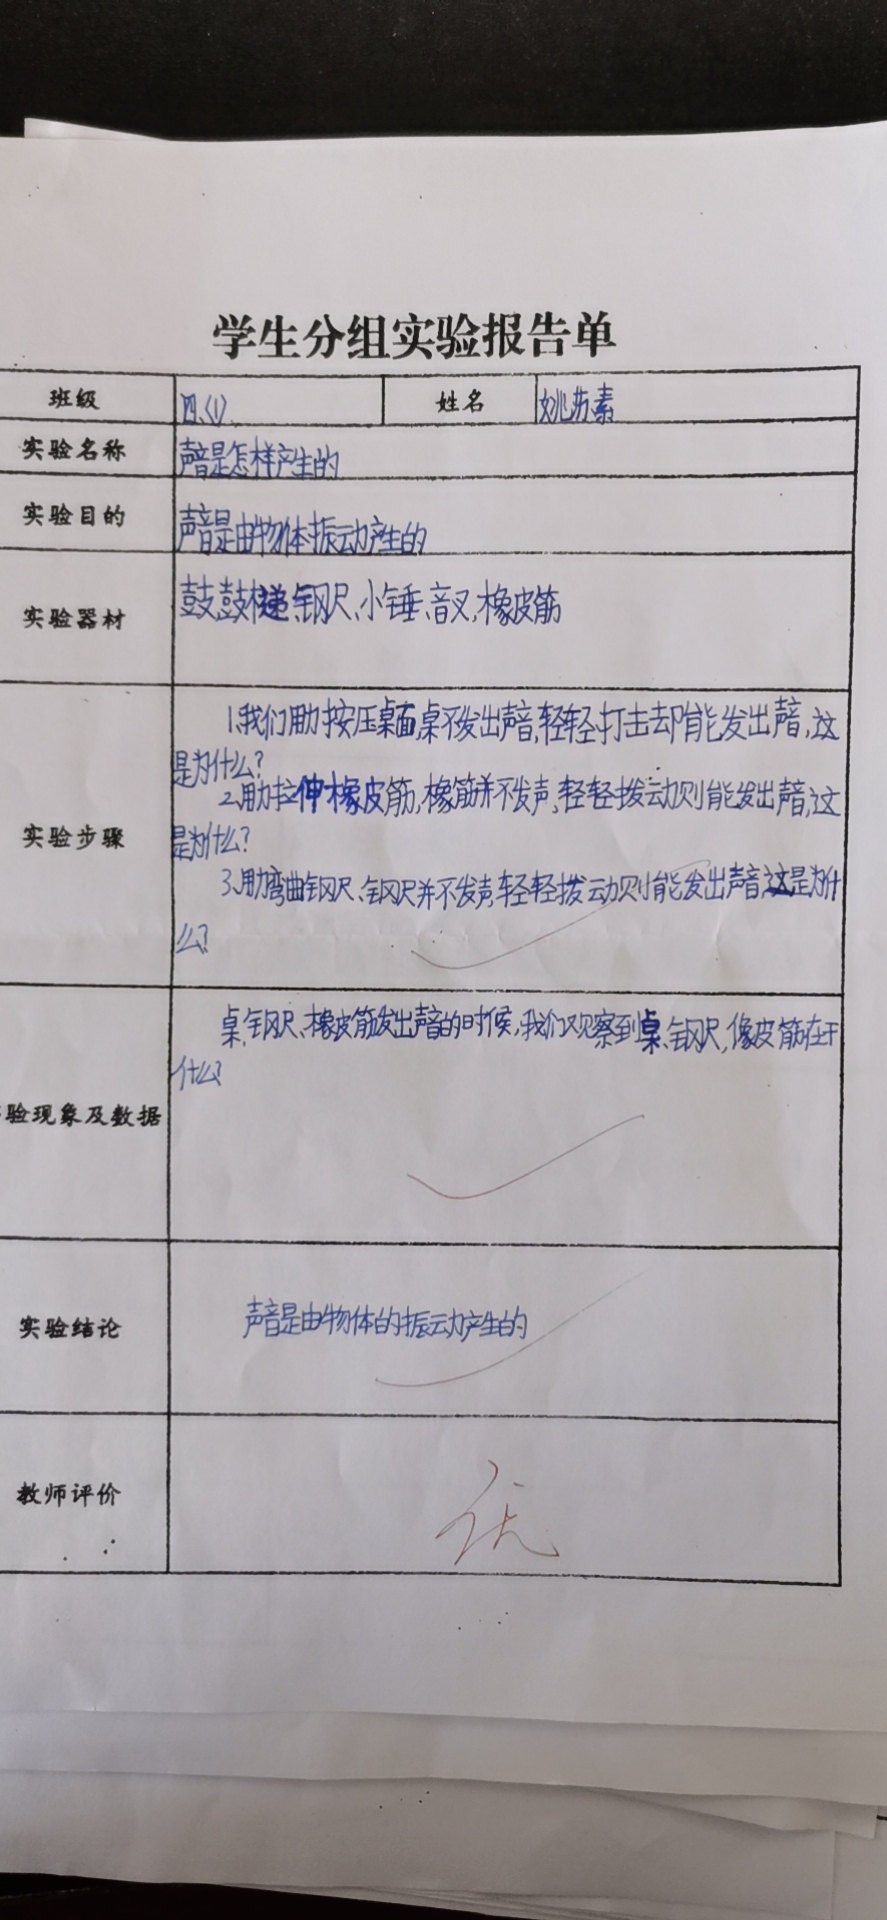 学生分组实验报告单
班级 四、(1) 姓名 姚苏素
实验名称 声音是怎样产生的
实验目的 声音是由物体振动产生的
实验器材 鼓鼓槌、钢尺、小锤、音叉,橡皮筋
1.我们用力按压桌面,桌不发出声音,轻轻打击却能发出声音,这
是为什么?
2.用力拉伸橡皮筋,橡筋并不发声,轻轻拨动则能发出声音,这
实验步骤
是为什么?
3.用力弯曲钢尺、钢尺并不发声,轻轻拨动则能发出声音,这是为什
么?
桌,钢尺、橡皮筋发出声音的时候,我们观察到桌、钢尺,像皮筋在干
什么?
验现象及数据
实验结论 声音是由物体的振动产生的
教师评价 优